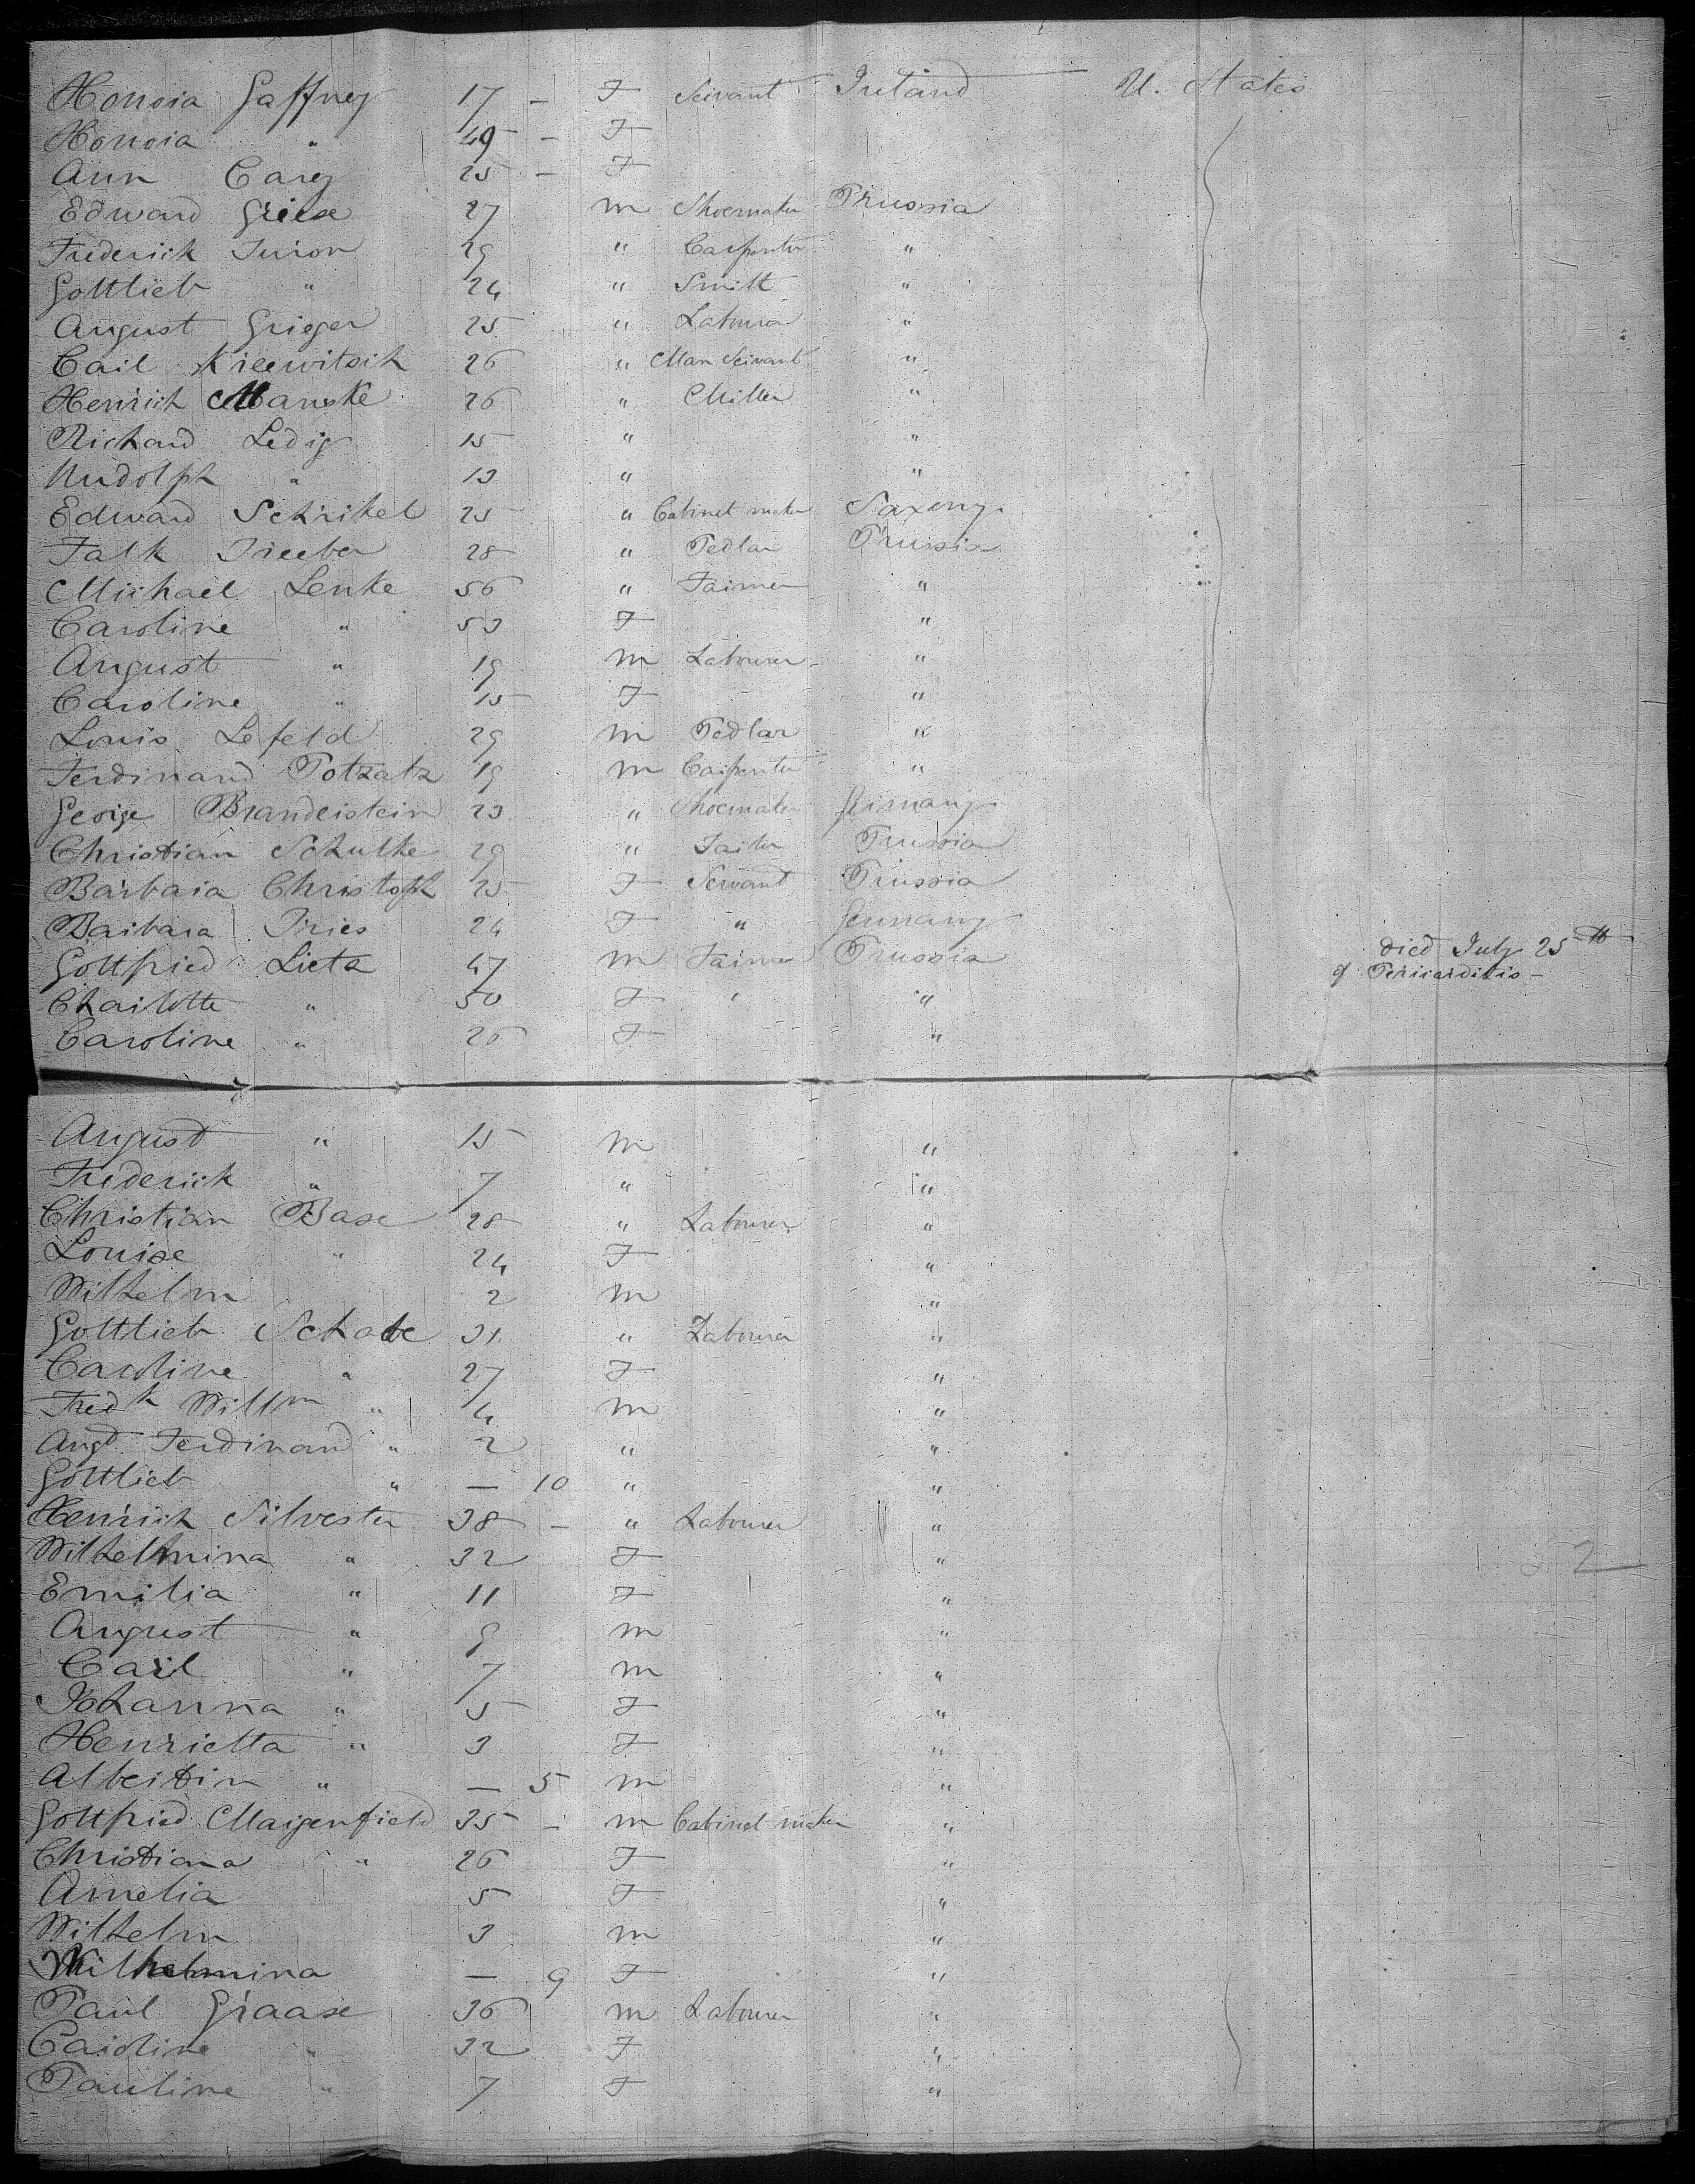 Honora Gaffney 17 - F Servant Ireland U. States
Honora " 49 - F
Ann Carey 25 - F
Edward Griese 27 m Shoemaker Prussia
Frederick Turon 29 " Carpenter "
Gottlieb " 24 " Smith "
August Grieger 25 " Labourer "
Carl 26 " Man Servant "
Henrich Manske 26 " Miller "
Richard Ledig 15 " "
Rudolph " 13 " "
Edward Schrikel 25 " Cabinet maker Saxony
Falk 28 " Pedlar Prussia
Michael Lenke 56 " Farmer "
Caroline " 53 F "
August " 19 m Labourer "
Caroline " 15 F "
Louis Lefeld 29 m Pedlar "
Ferdinand Potzatz 19 m Carpenter "
George Brandeistein 23 " Shoemaker Germany
Christian Schulke 29 " Tailor Prussia
Barbara Christoph 25 F Servant Prussia
Barbara Fries 24 F " Germany
Gottfried Lieta 47 m Farmer Prussia died July 25th
of Pericarditis -
Charlotte " 50 F " "
Caroline " 26 F "
August " 15 m "
Frederick " 7 " "
Christian Base 28 " Labourer "
Louise " 24 F "
Wilhelm 2 m "
Gottlieb Schade 31 " Labourer "
Caroline " 27 F "
Fredk Willm " 4 m "
Augt Ferdinand " 2 " "
Gottlieb " - 10 " "
Henrich Silvester 38 - " Labourer "
Wilhelmina " 32 F "
Emilia " 11 F "
August " 9 m "
Carl " 7 m "
Johanna " 5 F "
Henrietta " 3 F "
Albertin " - 5 m "
Gottfried Maigenfield 35 - m Cabinet maker "
Christiana " 26 F "
Amelia 5 F "
Wilhelm 3 m "
Wilhelmina - 9 F "
Paul Graase 36 m Labourer "
Caroline " 32 F "
Pauline " 7 F "